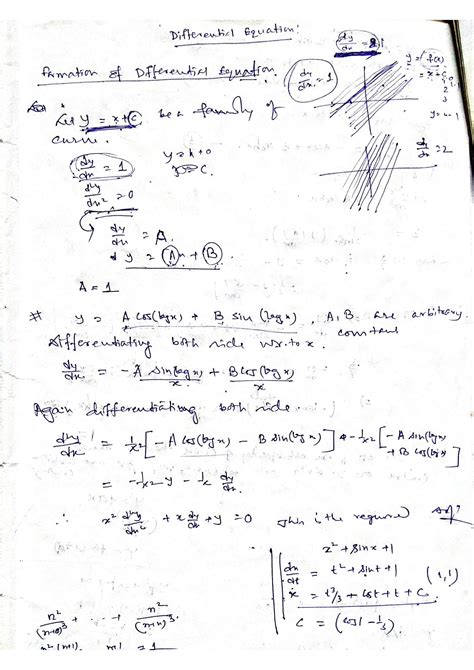 Differential Equation:
dy/dx = 1
y = f(x)
= x + c
Formation of Differential Equation.
dy/dx = 1
Let y = x + c be a family of
curve.
dy/dx = 1
y = x + 0
d²y/dx² = 0
dy/dx = 2
dy/dx = A
y = Ax + B
A = 1
# y = A cos(log x) + B sin(log x), A, B are arbitrary
constant
Differentiating both side w.r. to x.
dy/dx = - A sin(log x)/x + B cos(log x)/x
Again differentiating both side.
d²y/dx = 1/x² [- A cos(log x) - B sin(log x)] - 1/x² [- A sin(log x) + B cos(log x)]
= - 1/x² y - 1/x dy/dx
∴ x² d²y/dx² + x dy/dx + y = 0 This is the required
x² + sin x + 1
dx/dt = t² + sin t + 1 (1,1)
x = t³/3 - cos t + t + C
C = (cos 1 - 1/3)
n²/(n+1)³ + ... + n²/(n+n)³